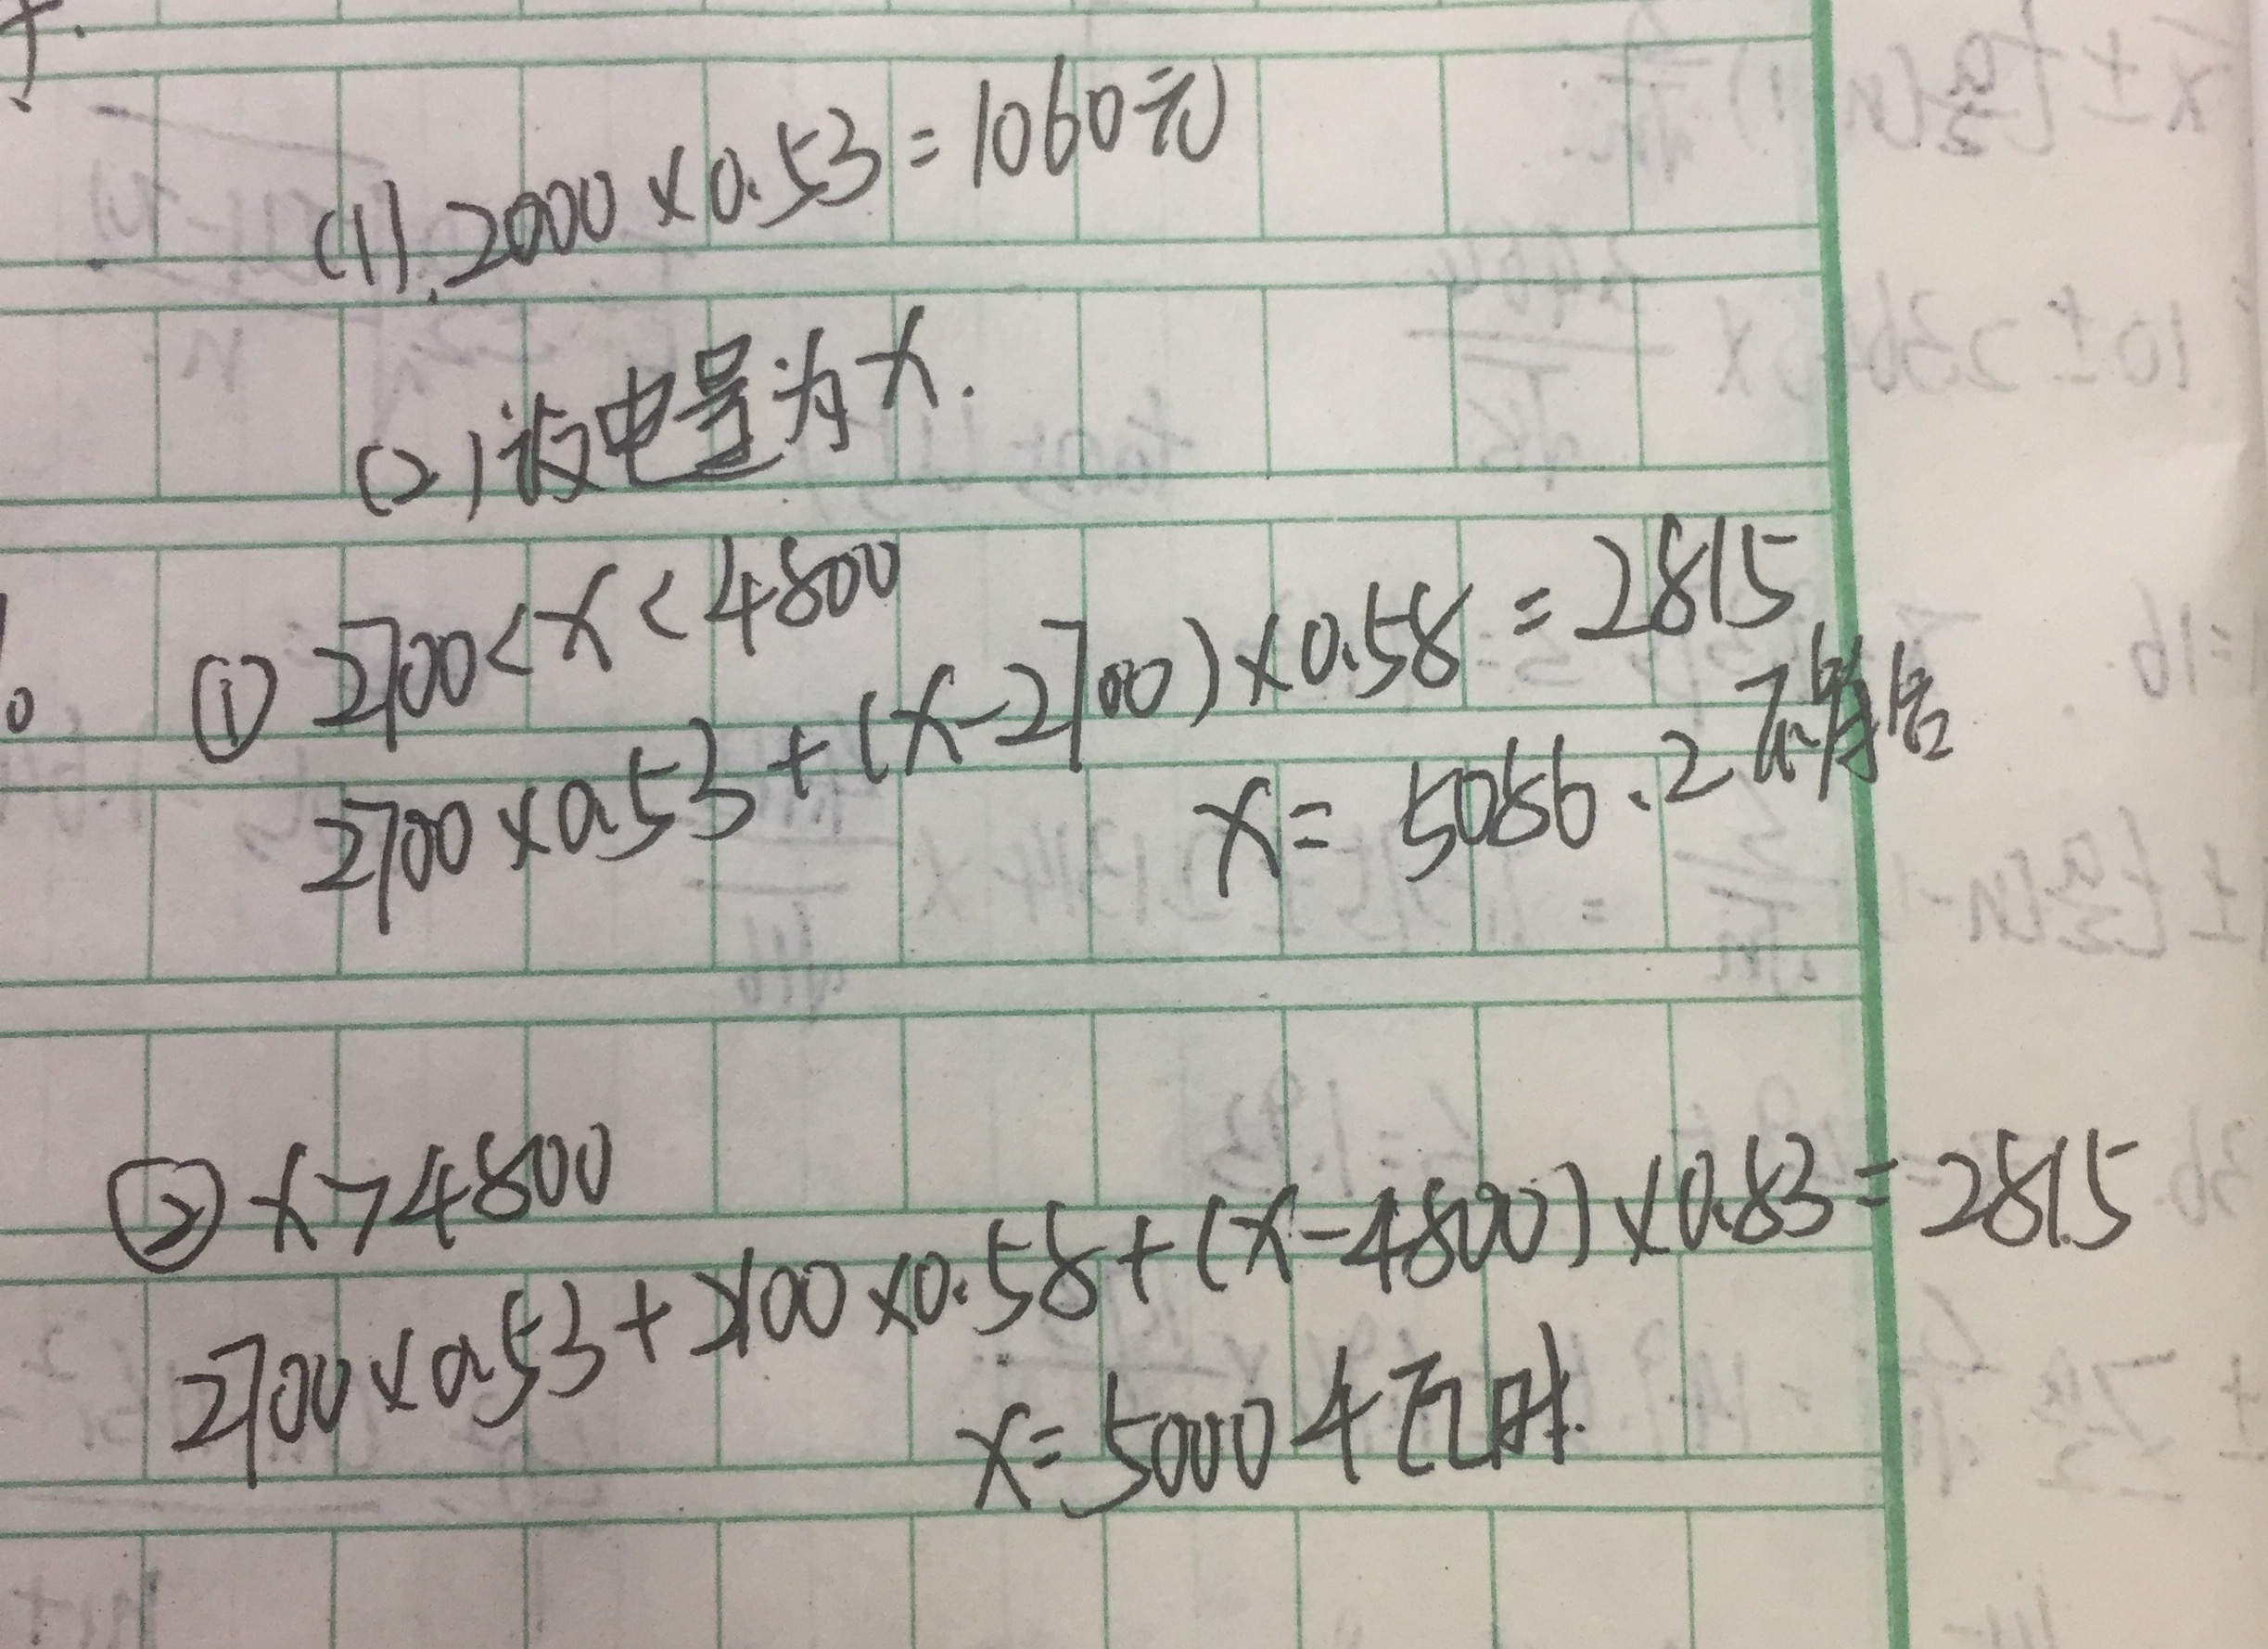 (1).2000×0.53=1060元
(2)设电量为x.
①2700<x<4800
2700×0.53+(x-2700)×0.58=2815
x=5086.2不符合
②x>4800
2700×0.53+2100×0.58+(x-4800)×0.83=2815
x=5000千瓦时.